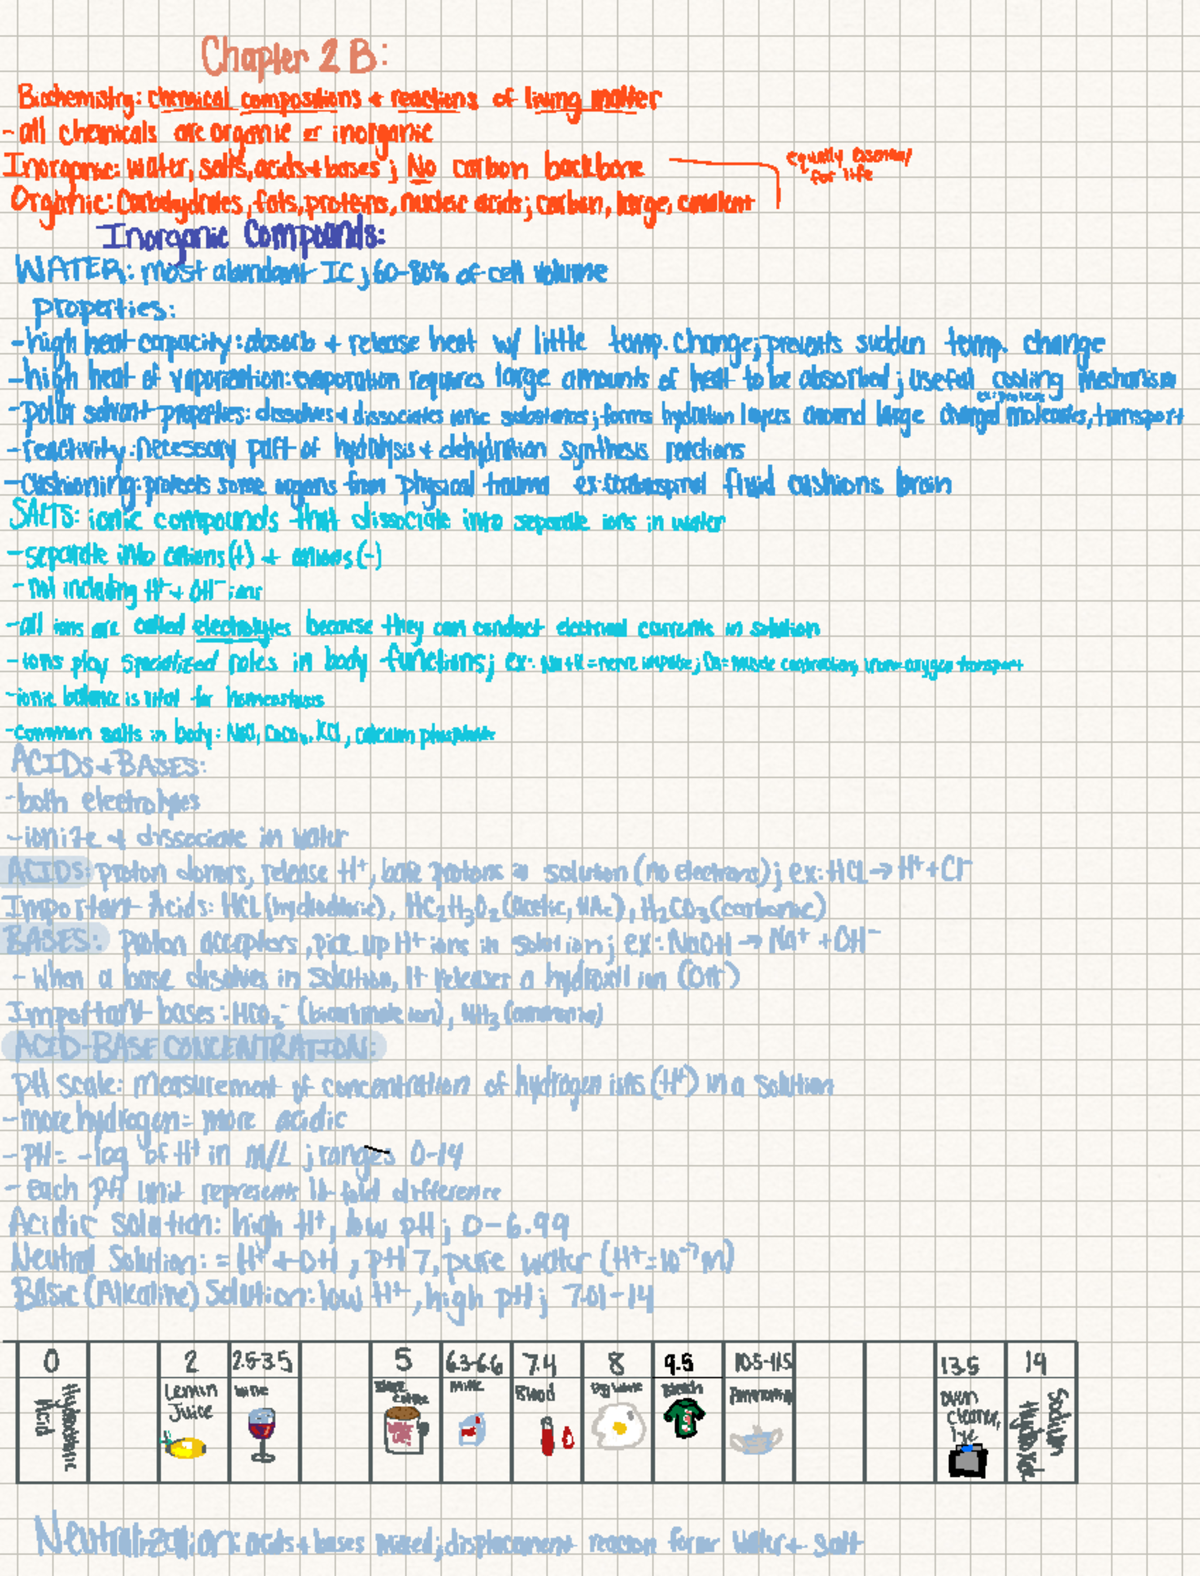 Chapter 2 B:
Biochemistry: chemical compositions + reactions of living matter
- all chemicals are organic or inorganic
Inorganic: water, salts, acids + bases; No carbon backbone
equally essential for life
Organic: Carbohydrates, fats, proteins, nucleic acids; carbon, large, covalent
Inorganic Compounds:
WATER: most abundant IC; 60-80% of cell volume
properties:
- high heat capacity: absorb + release heat w/ little temp. change; prevents sudden temp. change
- high heat of vaporization: evaporation requires large amounts of heat to be absorbed; useful cooling mechanism
ex: proteins
- polar solvent properties: dissolves + dissociates ionic substances; forms hydration layers around large charged molecules, transport
- reactivity: necessary part of hydrolysis + dehydration synthesis reactions
- Cushioning: protects some organs from physical trauma ex: cerebrospinal fluid cushions brain
SALTS: ionic compounds that dissociate into separate ions in water
- separate into cations (+) + anions (-)
- not including H+ + OH- ions
- all ions are called electrolytes because they can conduct electrical currents in solution
- ions play specialized roles in body functions; ex: Na+K = nerve impulse; Ca = muscle contraction, iron = oxygen transport
- ionic balance is vital for homeostasis
- common salts in body: NaCl, CaCO3, KCl, calcium phosphate
ACIDS + BASES:
- both electrolytes
- ionize + dissociate in water
ACIDS: proton donors, release H+, bare protons in solution (no electrons); ex: HCL → H+ + Cl-
Important Acids: HCL (hydrochloric), HC2H3O2 (acetic, HAc), H2CO3 (carbonic)
BASES: Proton acceptors, pick up H+ ions in solution; ex: NaOH → Na+ + OH-
- When a base dissolves in solution, it releases a hydroxyl ion (OH-)
Important bases: HCO3- (bicarbonate ion), NH3 (ammonia)
ACID-BASE CONCENTRATION:
pH Scale: Measurement of concentration of hydrogen ions (H+) in a solution
- more hydrogen = more acidic
- pH = -log of H+ in m/L; ranges 0-14
- each pH unit represents 10 fold difference
Acidic solution: high H+, low pH; 0-6.99
Neutral Solution: = H+ + OH, pH 7, pure water (H+ = 10-7 m)
Basic (Alkaline) Solution: low H+, high pH; 7.01-14
0 2 2.5-3.5 5 6.3-6.6 7.4 8 9.5 10.5-11.5 13.5 14
Hydrochloric Acid Lemon Juice wine Black coffee milk Blood egg white Bleach Ammonia oven cleaner, lye Sodium Hydroxide
Neutralization: acids + bases mixed; displacement reaction forms water + salt